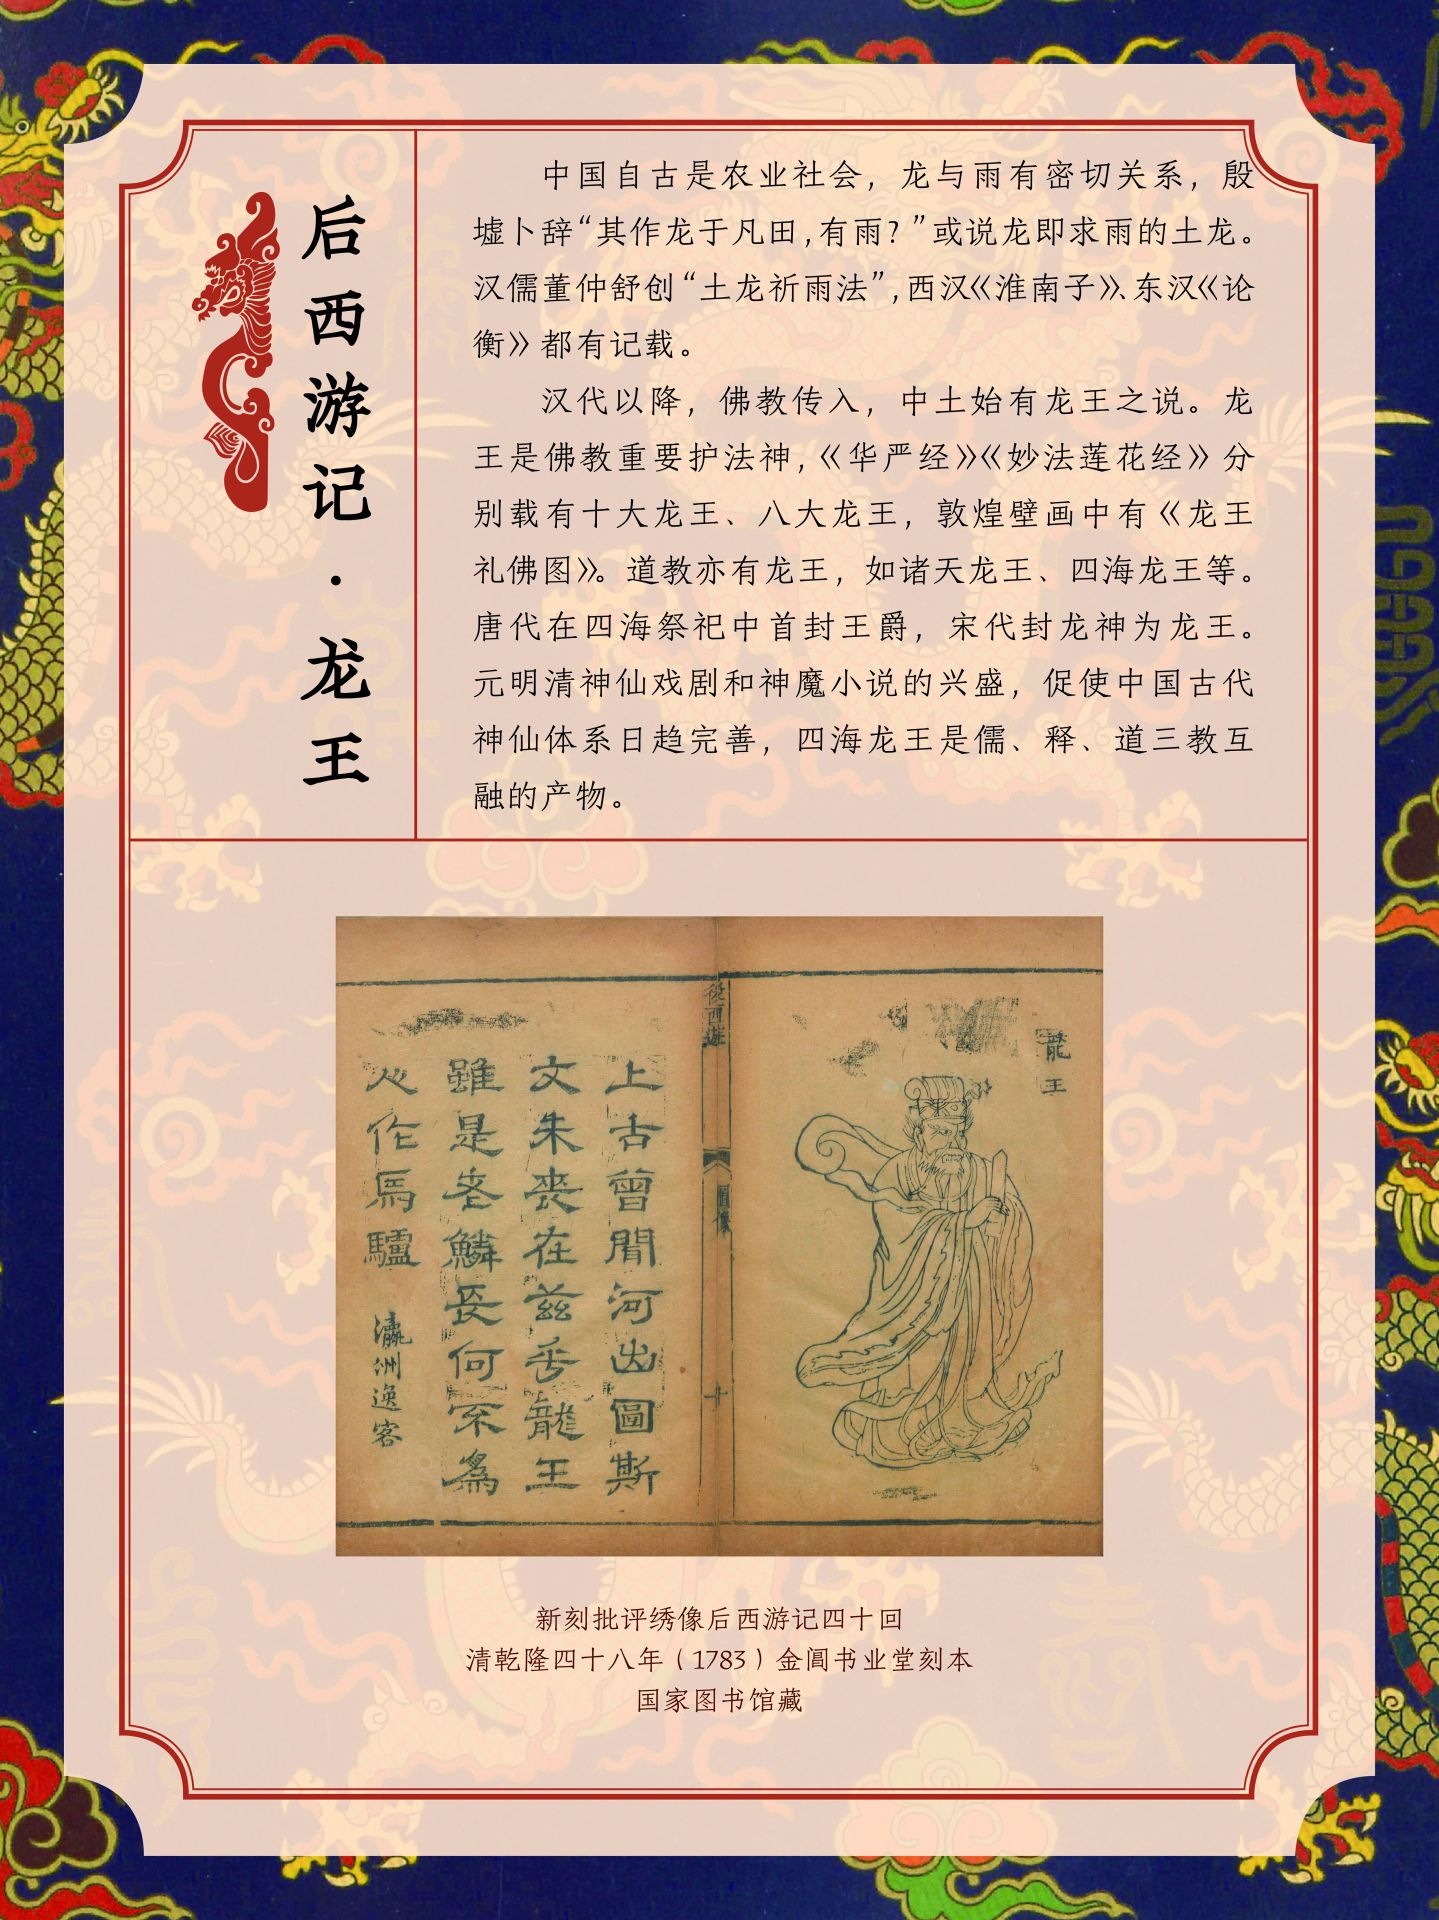 后西游记·龙王
中国自古是农业社会，龙与雨有密切关系，殷
墟卜辞“其作龙于凡田，有雨？”或说龙即求雨的土龙。
汉儒董仲舒创“土龙祈雨法”，西汉《淮南子》、东汉《论
衡》都有记载。
汉代以降，佛教传入，中土始有龙王之说。龙
王是佛教重要护法神，《华严经》《妙法莲花经》分
别载有十大龙王、八大龙王，敦煌壁画中有《龙王
礼佛图》。道教亦有龙王，如诸天龙王、四海龙王等。
唐代在四海祭祀中首封王爵，宋代封龙神为龙王。
元明清神仙戏剧和神魔小说的兴盛，促使中国古代
神仙体系日趋完善，四海龙王是儒、释、道三教互
融的产物。
龍王
後西遊
圖像
十
上古曾聞河出圖斯
文未喪在茲乎龍王
雖是老鱗長何不為
心作馬驢
瀛洲逸客
新刻批评绣像后西游记四十回
清乾隆四十八年（1783）金阊书业堂刻本
国家图书馆藏